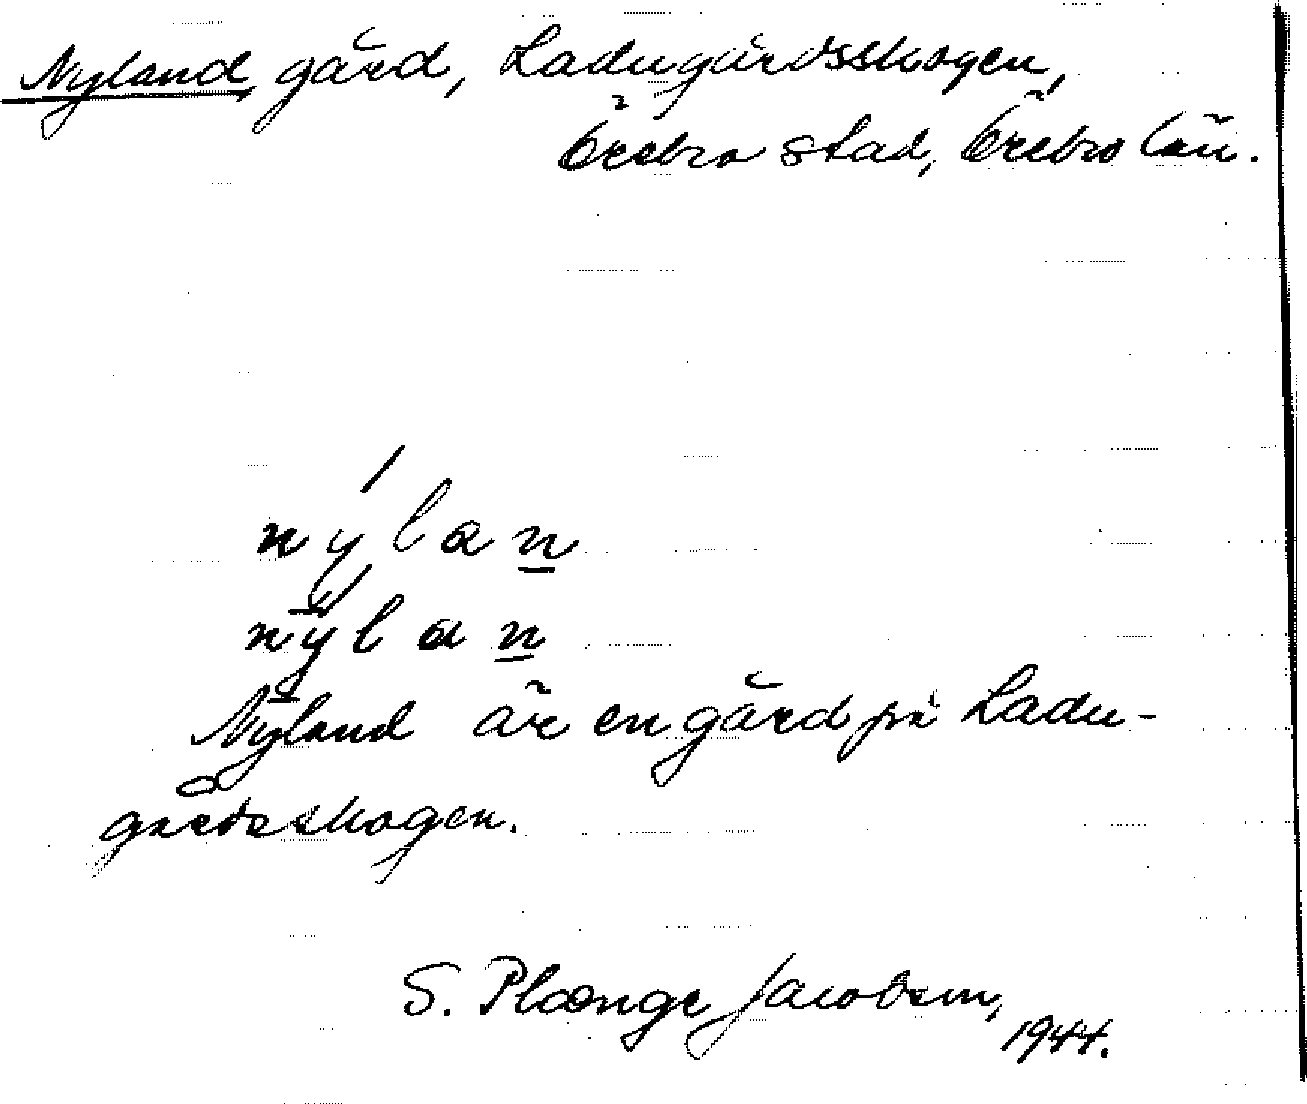 Nyland, gård, Ladugårdsskogen,
Örebro stad, Örebro län.
nýlan̲
nȳ́lan̲
Nyland är en gård på Ladu-
gårdsskogen.
S. Plænge Jacobsen,
1944.